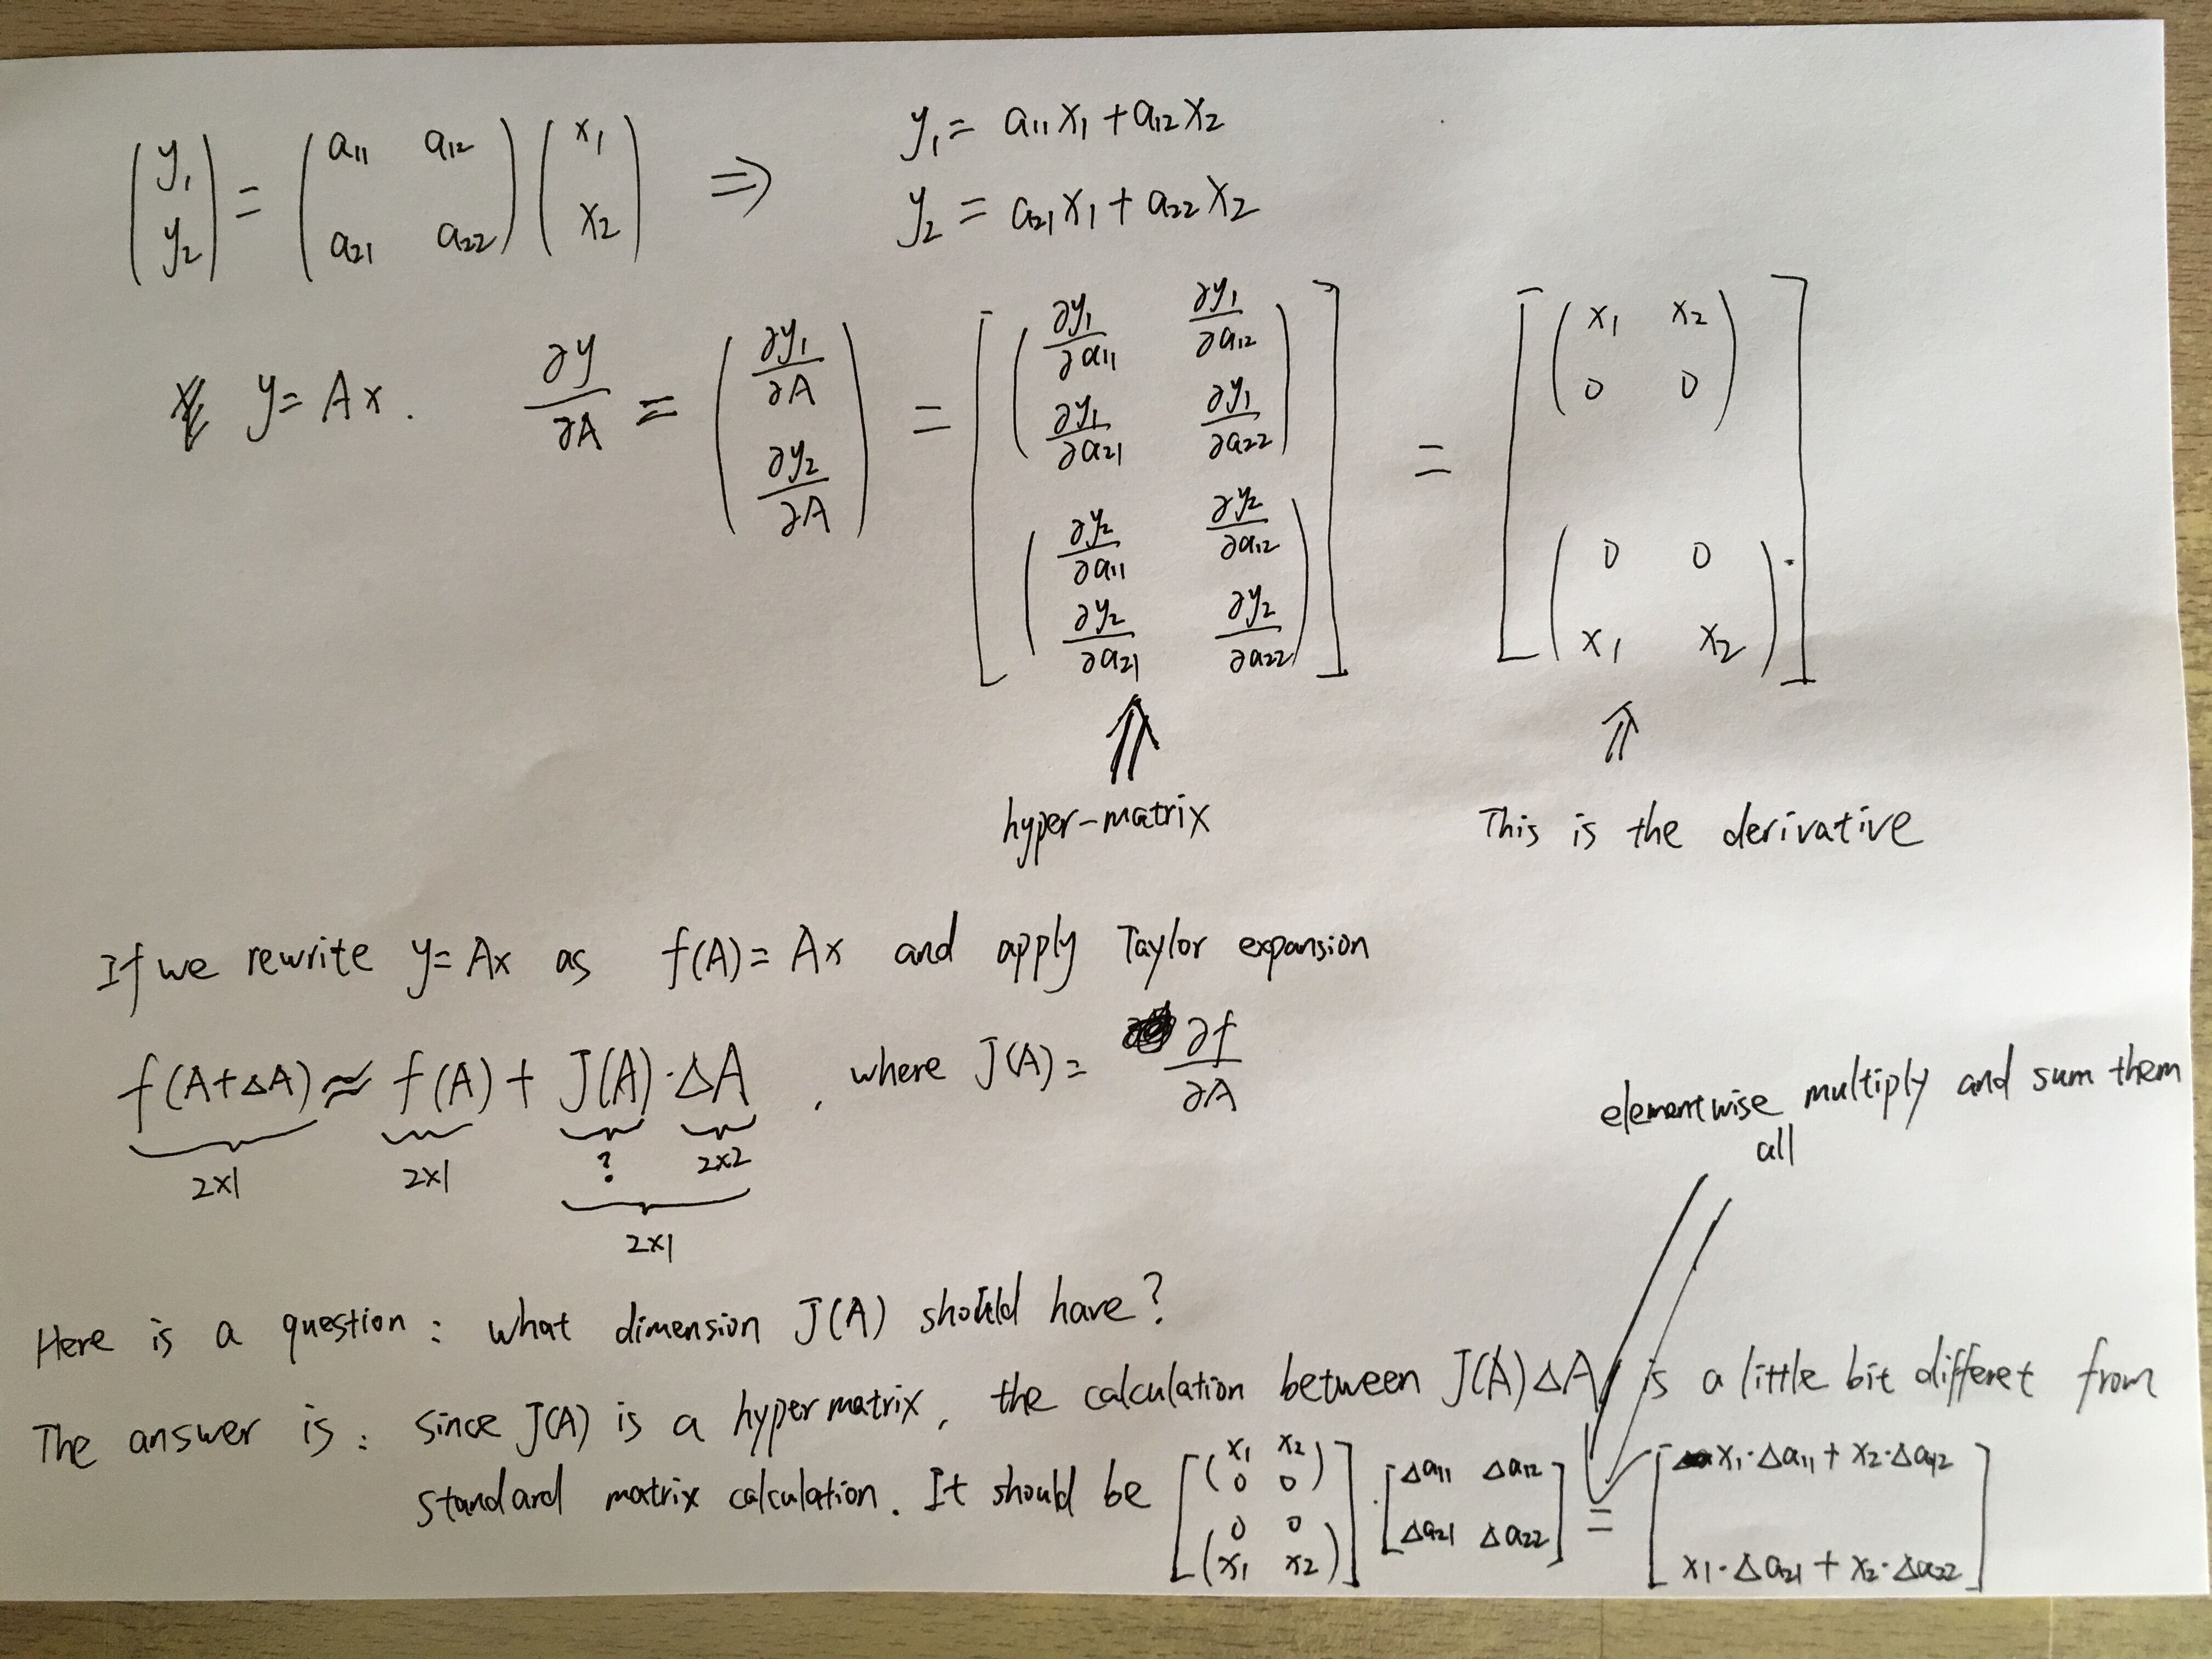 (y₁ y₂) = (a₁₁ a₁₂ a₂₁ a₂₂) (x₁ x₂) ⇒ y₁ = a₁₁x₁ + a₁₂x₂
y₂ = a₂₁x₁ + a₂₂x₂
y = Ax. ∂y/∂A = (∂y₁/∂A ∂y₂/∂A) = [(∂y₁/∂a₁₁ ∂y₁/∂a₁₂ ∂y₁/∂a₂₁ ∂y₁/∂a₂₂) (∂y₂/∂a₁₁ ∂y₂/∂a₁₂ ∂y₂/∂a₂₁ ∂y₂/∂a₂₂)] = [(x₁ x₂ 0 0) (0 0 x₁ x₂)]
⇑ ⇑
hyper-matrix This is the derivative
If we rewrite y=Ax as f(A)=Ax and apply Taylor expansion
f(A+ΔA) ≈ f(A) + J(A)·ΔA, where J(A) = ∂f/∂A
2x1 2x1 ? 2x2
2x1
elementwise multiply and sum them
all
Here is a question: what dimension J(A) should have?
The answer is: since J(A) is a hypermatrix, the calculation between J(A)ΔA is a little bit differet from
standard matrix calculation. It should be [(x₁ x₂ 0 0) (0 0 x₁ x₂)]·[Δa₁₁ Δa₁₂ Δa₂₁ Δa₂₂] = [x₁·Δa₁₁ + x₂·Δa₁₂ x₁·Δa₂₁ + x₂·Δa₂₂]